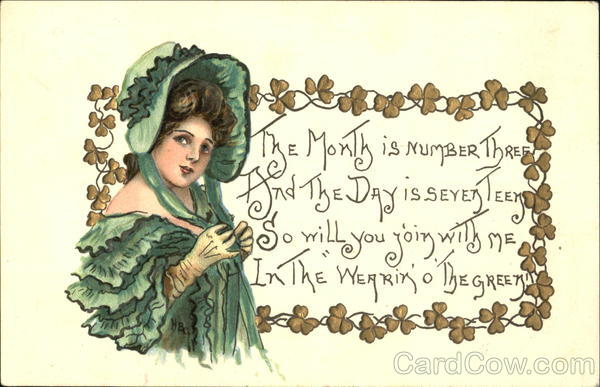 The Month is number Three
And The Day is seven Teen
So will you join with me
In The "Wearin' o' The green"
HBG
CardCow.com